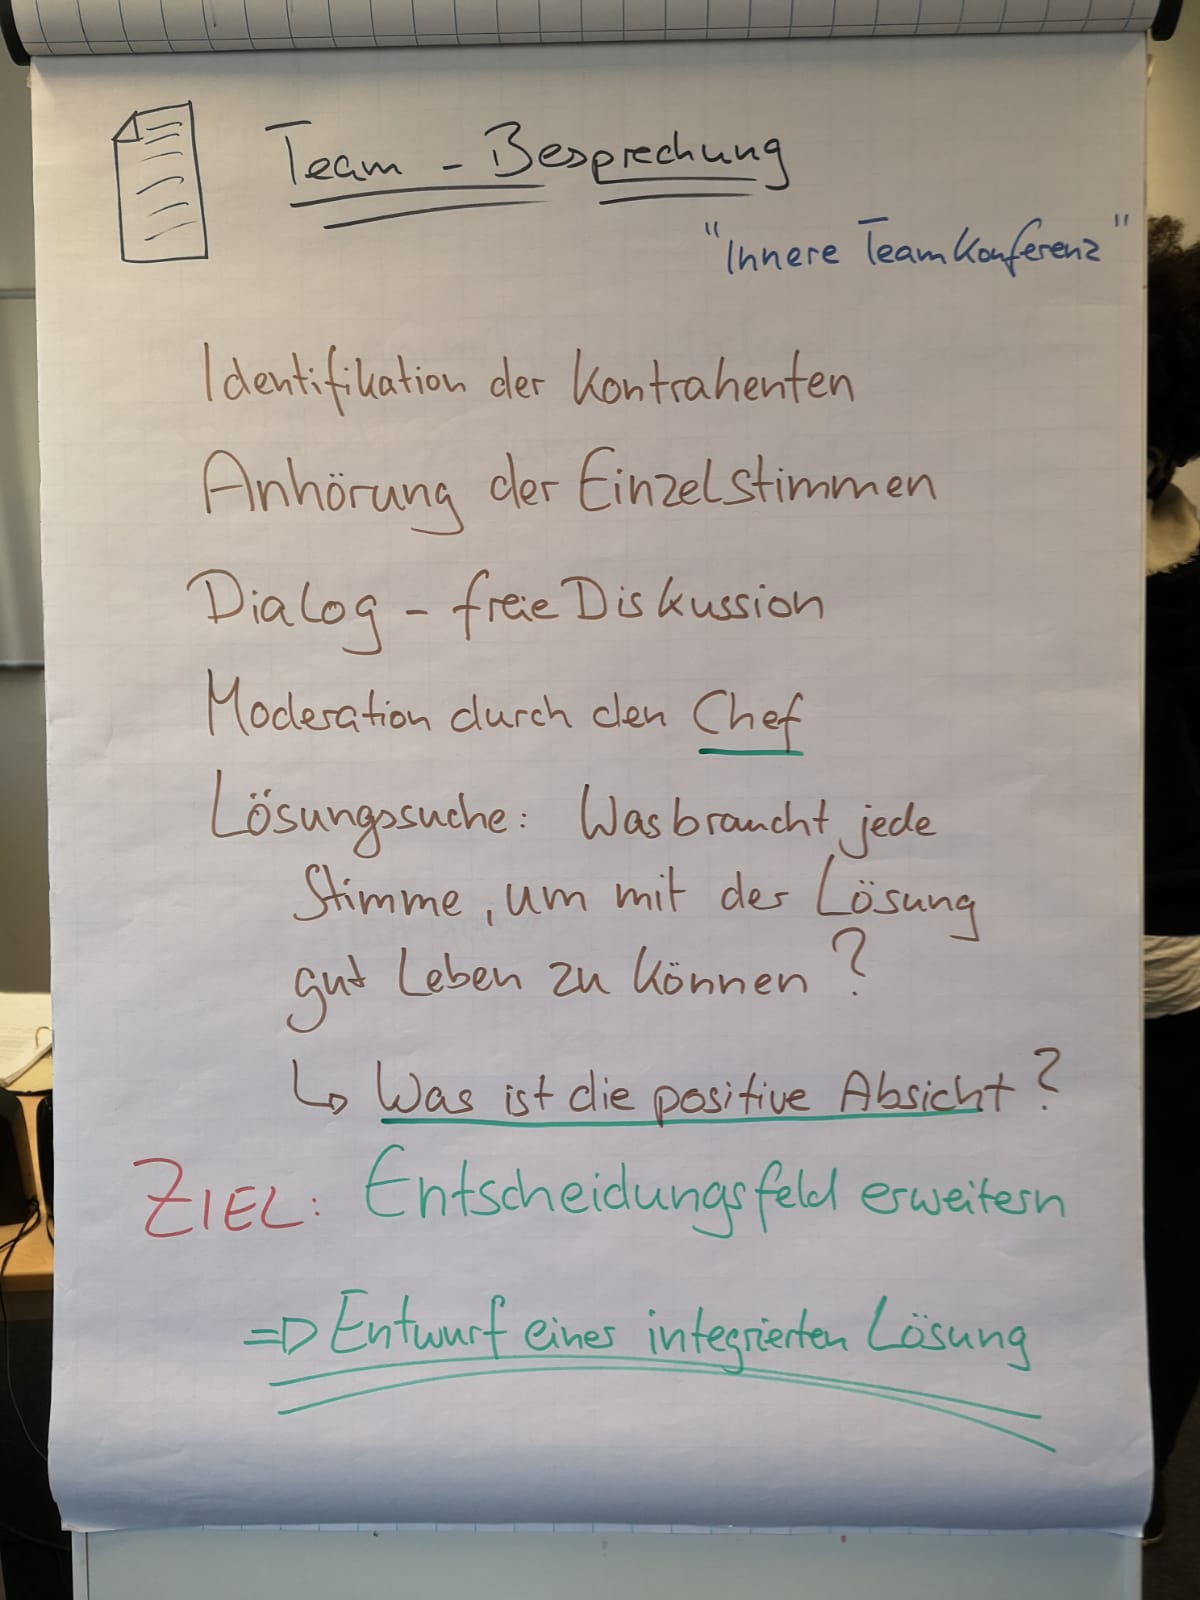 Team - Besprechung
"Innere Teamkonferenz"
Identifikation der Kontrahenten
Anhörung der Einzelstimmen
Dialog - freie Diskussion
Moderation durch den Chef
Lösungssuche: Was braucht jede
Stimme, um mit der Lösung
gut Leben zu können?
↳ Was ist die positive Absicht?
ZIEL: Entscheidungsfeld erweitern
=> Entwurf einer integrierten Lösung